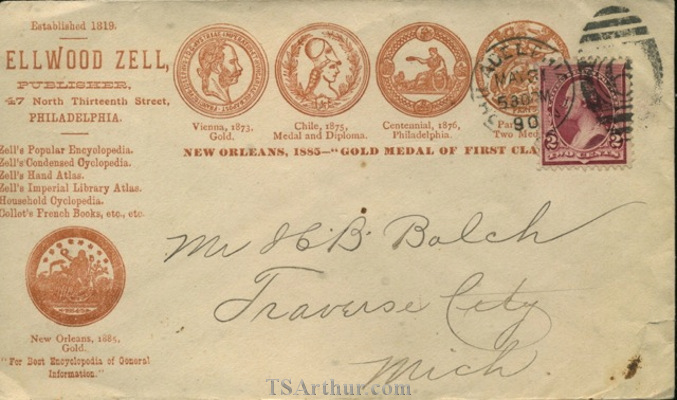 Established 1819.
ELLWOOD ZELL,
PUBLISHER,
47 North Thirteenth Street,
PHILADELPHIA.
Zell's Popular Encyclopedia.
Zell's Condensed Cyclopedia.
Zell's Hand Atlas.
Zell's Imperial Library Atlas.
Household Cyclopedia.
Collot's French Books, etc., etc.
New Orleans, 1885,
Gold.
"For Best Encyclopedia of General
Information."
Vienna, 1873.
Gold.
Chile, 1875,
Medal and Diploma.
Centennial, 1876,
Philadelphia.
Two Med
NEW ORLEANS, 1885—"GOLD MEDAL OF FIRST CLA
530PM
90
2 2
TWO CENTS
Mr H. B. Balch
Traverse City
Mich
TSArthur.com